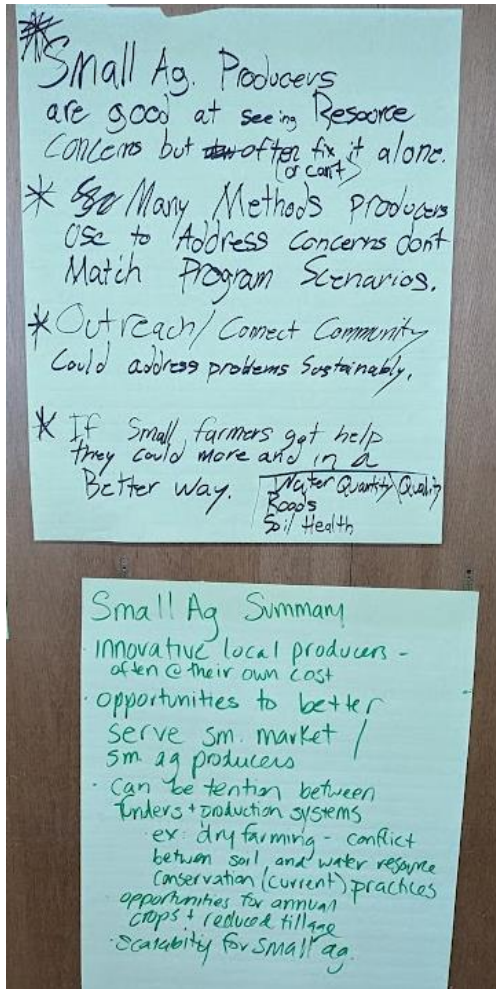 * Small Ag. Producers
are good at seeing Resource
Concerns but often fix it alone.
(or can't)
* Many Methods producers
Use to Address Concerns don't
Match Program Scenarios.
* Outreach/Connect Community
Could address problems Sustainably.
* If Small farmers got help
they could more and in a
Better way.
Water Quantity\Quality
Roads
Soil Health
Small Ag Summary
· innovative local producers -
often @ their own cost
· opportunities to better
serve sm. market /
sm. ag producers
· Can be tention between
funders + production systems
ex: dry farming - conflict
betwen soil and water resource
conservation (current) practices
opportunities for annual
crops + reduced tillage
· scalabity for small ag.